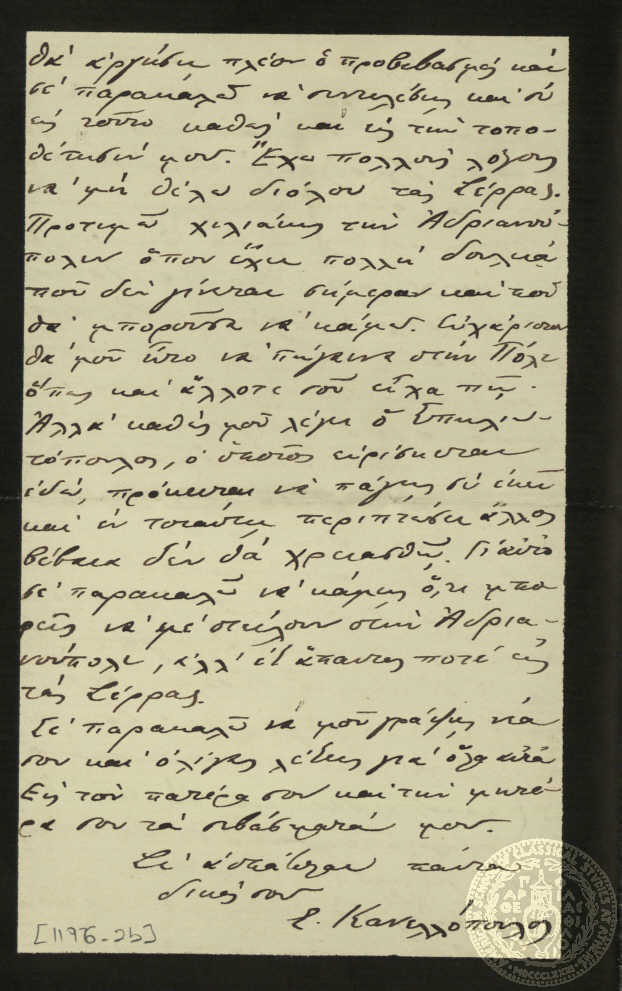 θα' αργήση πλέον ὁ προβιβασμός καὶ
σὲ παρακαλῶ νὰ συντελέσῃς καὶ σὺ
εἰς τοῦτο καθὼς καὶ εἰς τὴν τοπο-
θέτησίν μου. Ἔχω πολλοὺς λόγους
νὰ μὴ θέλω διόλου τὰς Σέρρας.
Προτιμῶ χιλιάκις τὴν Ἀδριανού-
πολιν ὅπου ἔχει πολλὴ δουλειὰ
ποῦ δεν γίνεται σήμερον καὶ ποῦ
θὰ μποροῦσα νὰ κάμω. Εὐχάριστον
θὰ μοῦ ἦτο νὰ πήγαινα στὴν Πόλι
ὅπως καὶ ἄλλοτε σοῦ εἶχα πῇ.
Ἀλλὰ καθὼς μοῦ λέγει ὁ
τόπουλος, ὁ ὁποῖος εὑρίσκεται
ἐδῶ, πρόκειται νὰ πάγῃς σὺ ἐκεῖ
καὶ ἐν τοιαύτῃ περιπτώσει ἄλλος
βέβαια δὲν θὰ χρειασθῇ. Γι' αὐτὸ
σὲ παρακαλῶ νὰ κάμῃς ὅ,τι μπο
ρεῖς νὰ μὲ στείλουν στὴν Ἀδρια-
νούπολι, ἀλλ' ἐξ ἅπαντος ποτὲ εἰς
τὰς Σέρρας.
Σὲ παρακαλῶ νὰ μοῦ γράψῃς νέα
σου καὶ ὀλίγες λέξεις γιὰ ὅλα αὐτὰ
Εἰς τὸν πατέρα σου καὶ τὴν μητέ-
ρα σου τὰ σεβάσματά μου.
Σὲ ἀσπάζομαι πάντα
δικός σου
Ε. Κανελλόπουλος
[1196-2b]
AMERICAN SCHOOL OF CLASSICAL STUDIES AT ATHENS
MDCCCLXXXI